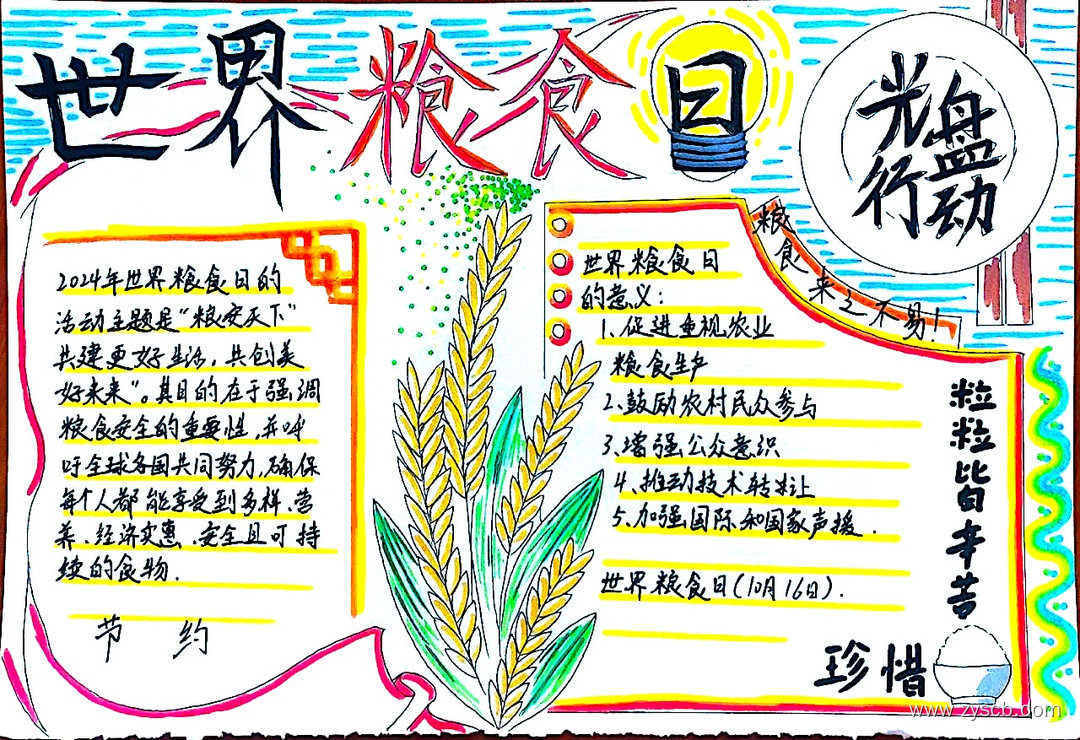 世界粮食日
光盘
行动
粮食来之不易!
2024年世界粮食日的
活动主题是"粮安天下"
共建更好生活,共创美
好未来"。其目的在于强调
粮食安全的重要性,并呼
吁全球各国共同努力,确保
每个人都能享受到多样、营
养、经济实惠、安全且可持
续的食物.
节约
世界粮食日
的意义:
1、促进重视农业
粮食生产
2、鼓励农村民众参与
3、增强公众意识
4、推动技术转让
5、加强国际和国家声援.
世界粮食日(10月16日).
粒粒皆辛苦
珍惜
www.zyscb.com